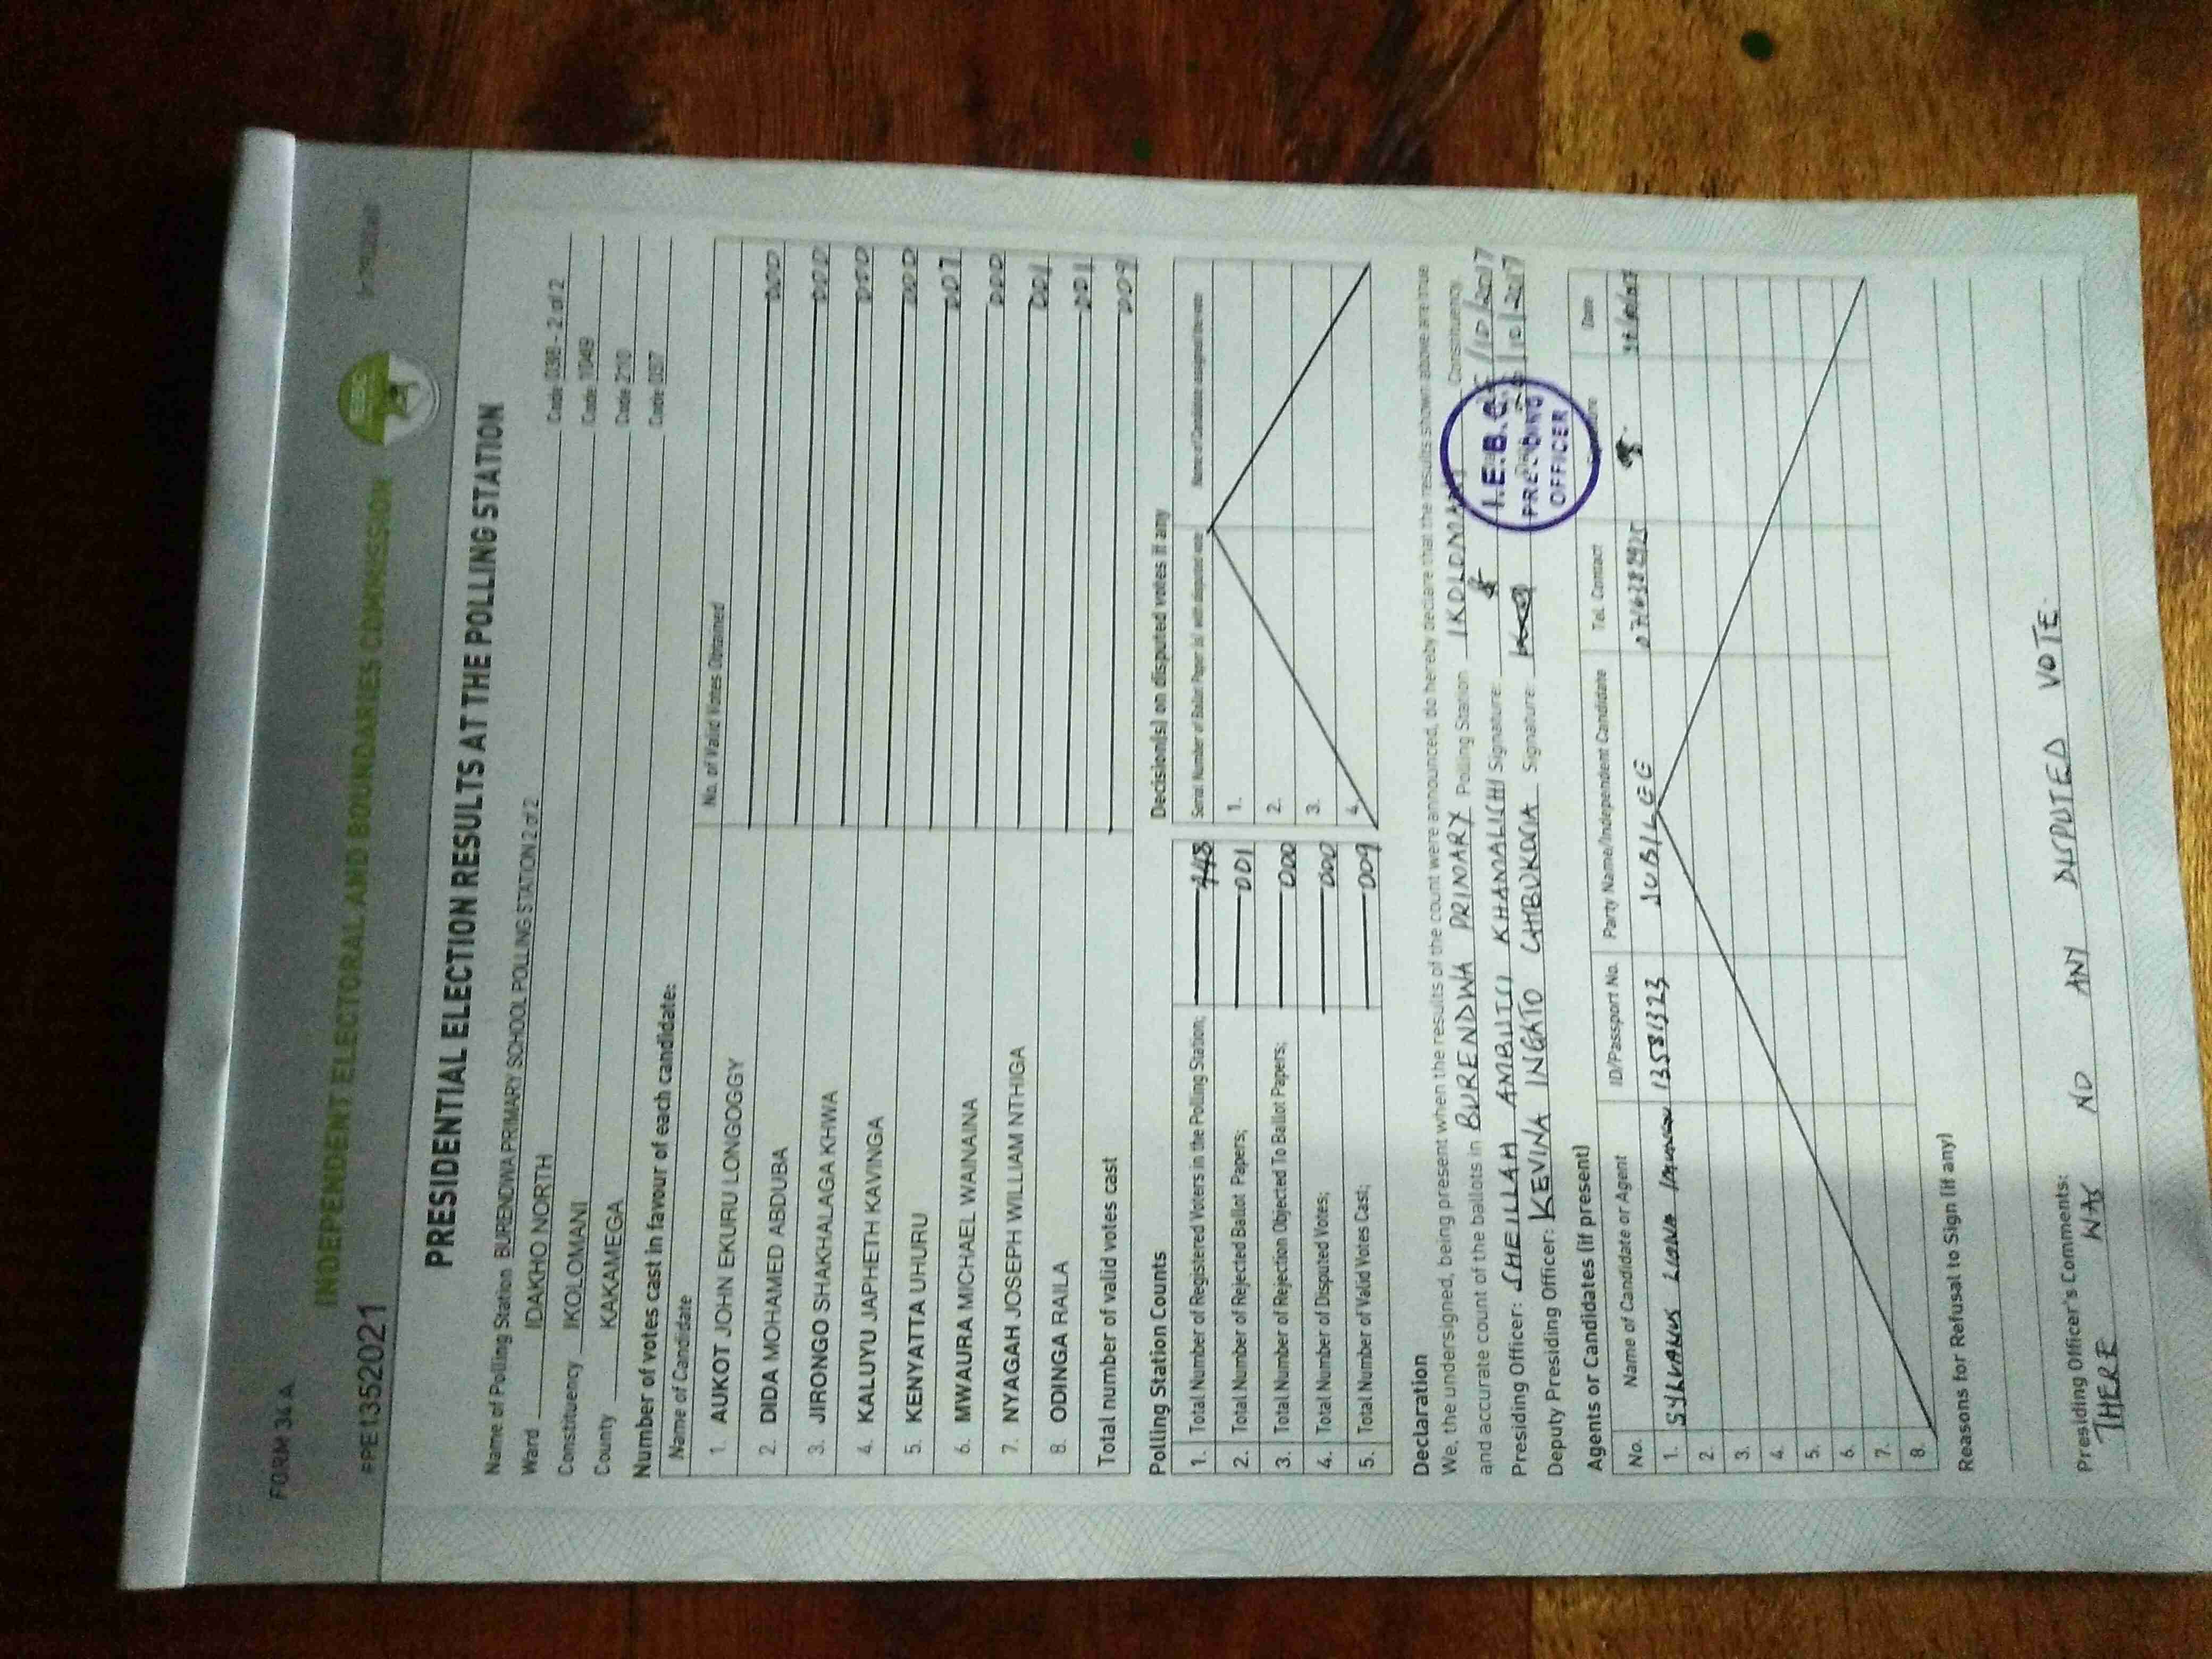 FORM 34A
INDEPENDENT ELECTORAL AND BOUNDARIES COMMISSION
PPE1352021
PRESIDENTIAL ELECTION RESULTS AT THE POLLING STATION
Name of Polling Station BURENDWA PRIMARY SCHOOL POLLING STATION 2 of 2 Code 038 - 2 of 2
Ward IDAKHO NORTH Code 1049
Constituency IKOLOMANI Code 210
County KAKAMEGA Code 037
Number of votes cast in favour of each candidate:
Name of Candidate No. of Valid Votes Obtained
1. AUKOT JOHN EKURU LONGOGGY 000
2. DIDA MOHAMED ABDUBA 000
3. JIRONGO SHAKHALAGA KHWA 000
4. KALUYU JAPHETH KAVINGA 000
5. KENYATTA UHURU 007
6. MWAURA MICHAEL WAINAINA 000
7. NYAGAH JOSEPH WILLIAM NTHIGA 001
8. ODINGA RAILA 001
Total number of valid votes cast 009
Polling Station Counts
1. Total Number of Registered Voters in the Polling Station;
2. Total Number of Rejected Ballot Papers; 001
3. Total Number of Rejection Objected To Ballot Papers; 000
4. Total Number of Disputed Votes; 000
5. Total Number of Valid Votes Cast; 009
Decision(s) on disputed votes if any
Serial Number of Ballot Paper (s) with disputed vote Name of Candidate assigned the vote
1.
2.
3.
4.
Declaration
We, the undersigned, being present when the results of the count were announced, do hereby declare that the results shown above are true
and accurate count of the ballots in BURENDWA PRIMARY Polling Station IKOLOMANI Constituency.
Presiding Officer: SHEILLAH AMBUTSI KHAMALISHI Signature: /10/2017
Deputy Presiding Officer: KEVINA INGATO Signature: 10/2017
I.E.B.C.
PRESIDING
OFFICER
Agents or Candidates (if present)
No. Name of Candidate or Agent ID/Passport No. Party Name/Independent Candidate Tel. Contact Signature Date
1. SYLVANUS 13581323 JUBILEE
2.
3.
4.
5.
6.
7.
8.
Reasons for Refusal to Sign (if any)
Presiding Officer's Comments:
THERE WAS NO ANY DISPUTED VOTE.